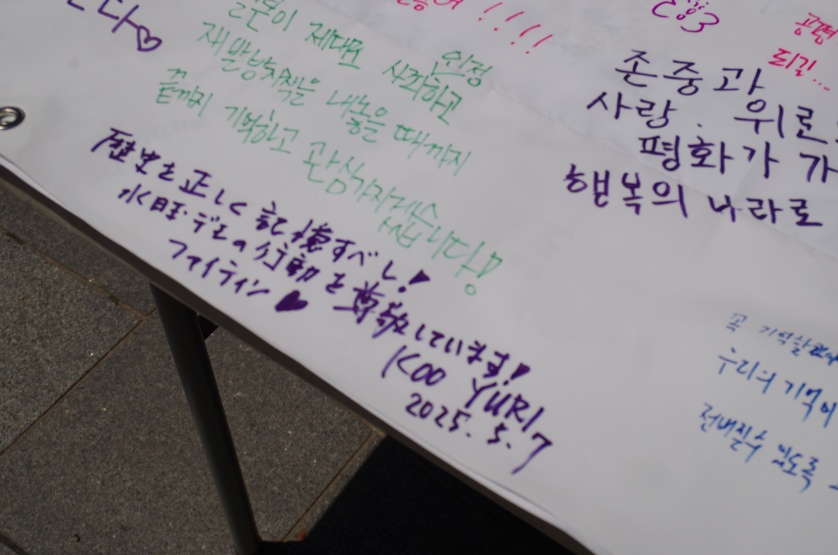 다♡
!!!!
공평
되길...
일본이 제대로 사죄하고
인정
재발방지책을 내놓을 때까지
끝까지 기억하고 관심가지겠습니다!
존중과
사랑. 위로
평화가 가
행복의 나라로
歴史を正しく記憶すべし!♥
水曜デモの行動を尊敬しています!♥
ファイティン♥
KOO YURI
2025.5.7
꼭
우리의 기억이
전해질수 있도록